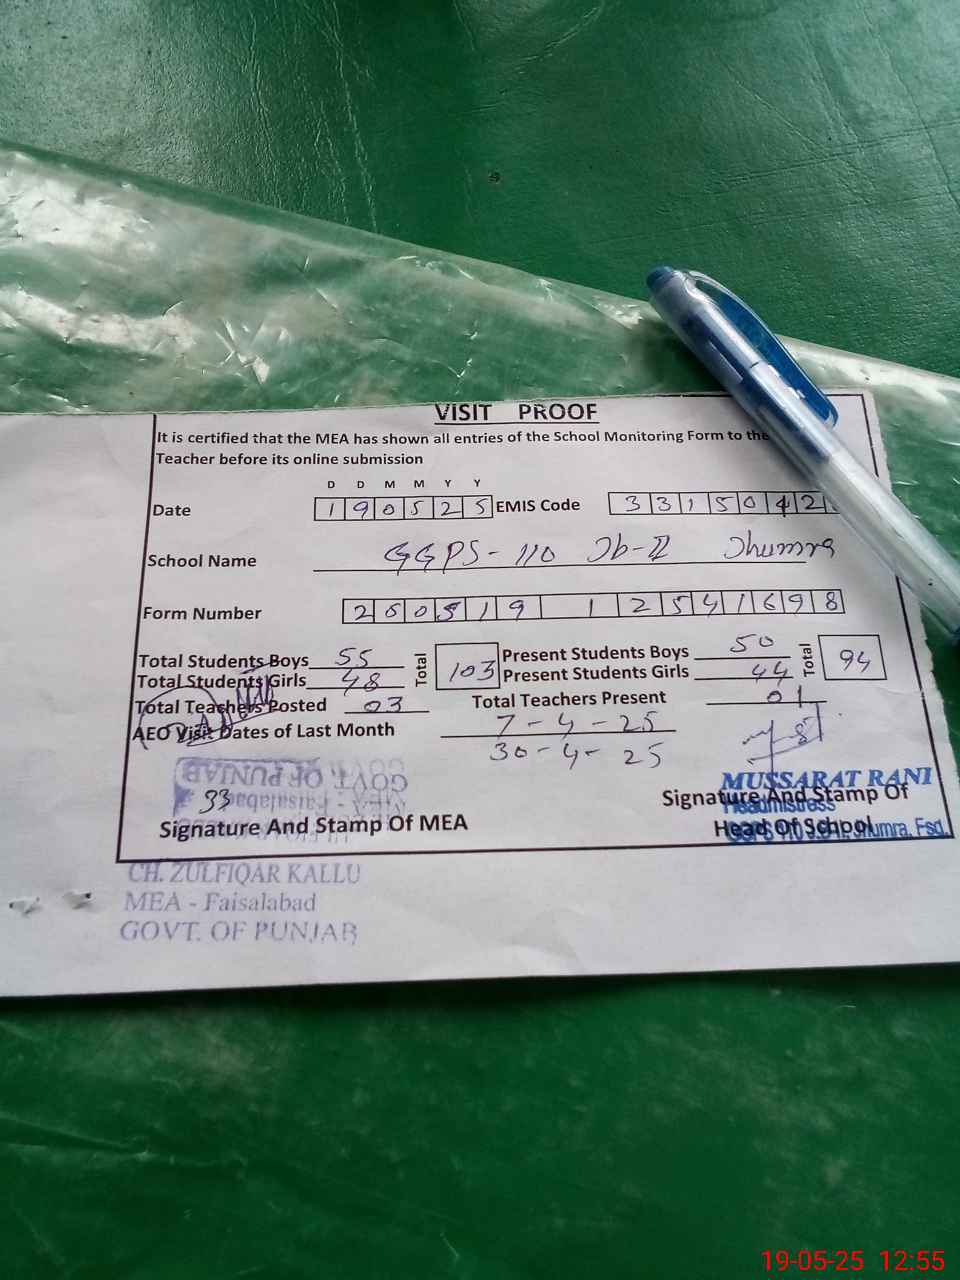 VISIT PROOF
It is certified that the MEA has shown all entries of the School Monitoring Form to the
Teacher before its online submission
D D M M Y Y
Date 190525 EMIS Code 3315042
School Name GGPS-110 Jb-II Jhumra
Form Number 260519 1 2541698
Total Students Boys 55 Total 103 Present Students Boys 50 Total 94
Total Students Girls 48 Present Students Girls 44
Total Teachers Posted 03 Total Teachers Present 01
AEO Visit Dates of Last Month 7-4-25
30-4-25
GOVT. OF PUNJAB
MEA - Faisalabad
33
MUSSARAT RANI
Headmistress
Signature And Stamp Of MEA Signature And Stamp Of
Head Of School
Jhumra, Fsd.
CH. ZULFIQAR KALLU
MEA - Faisalabad
GOVT. OF PUNJAB
19-05-25 12:55